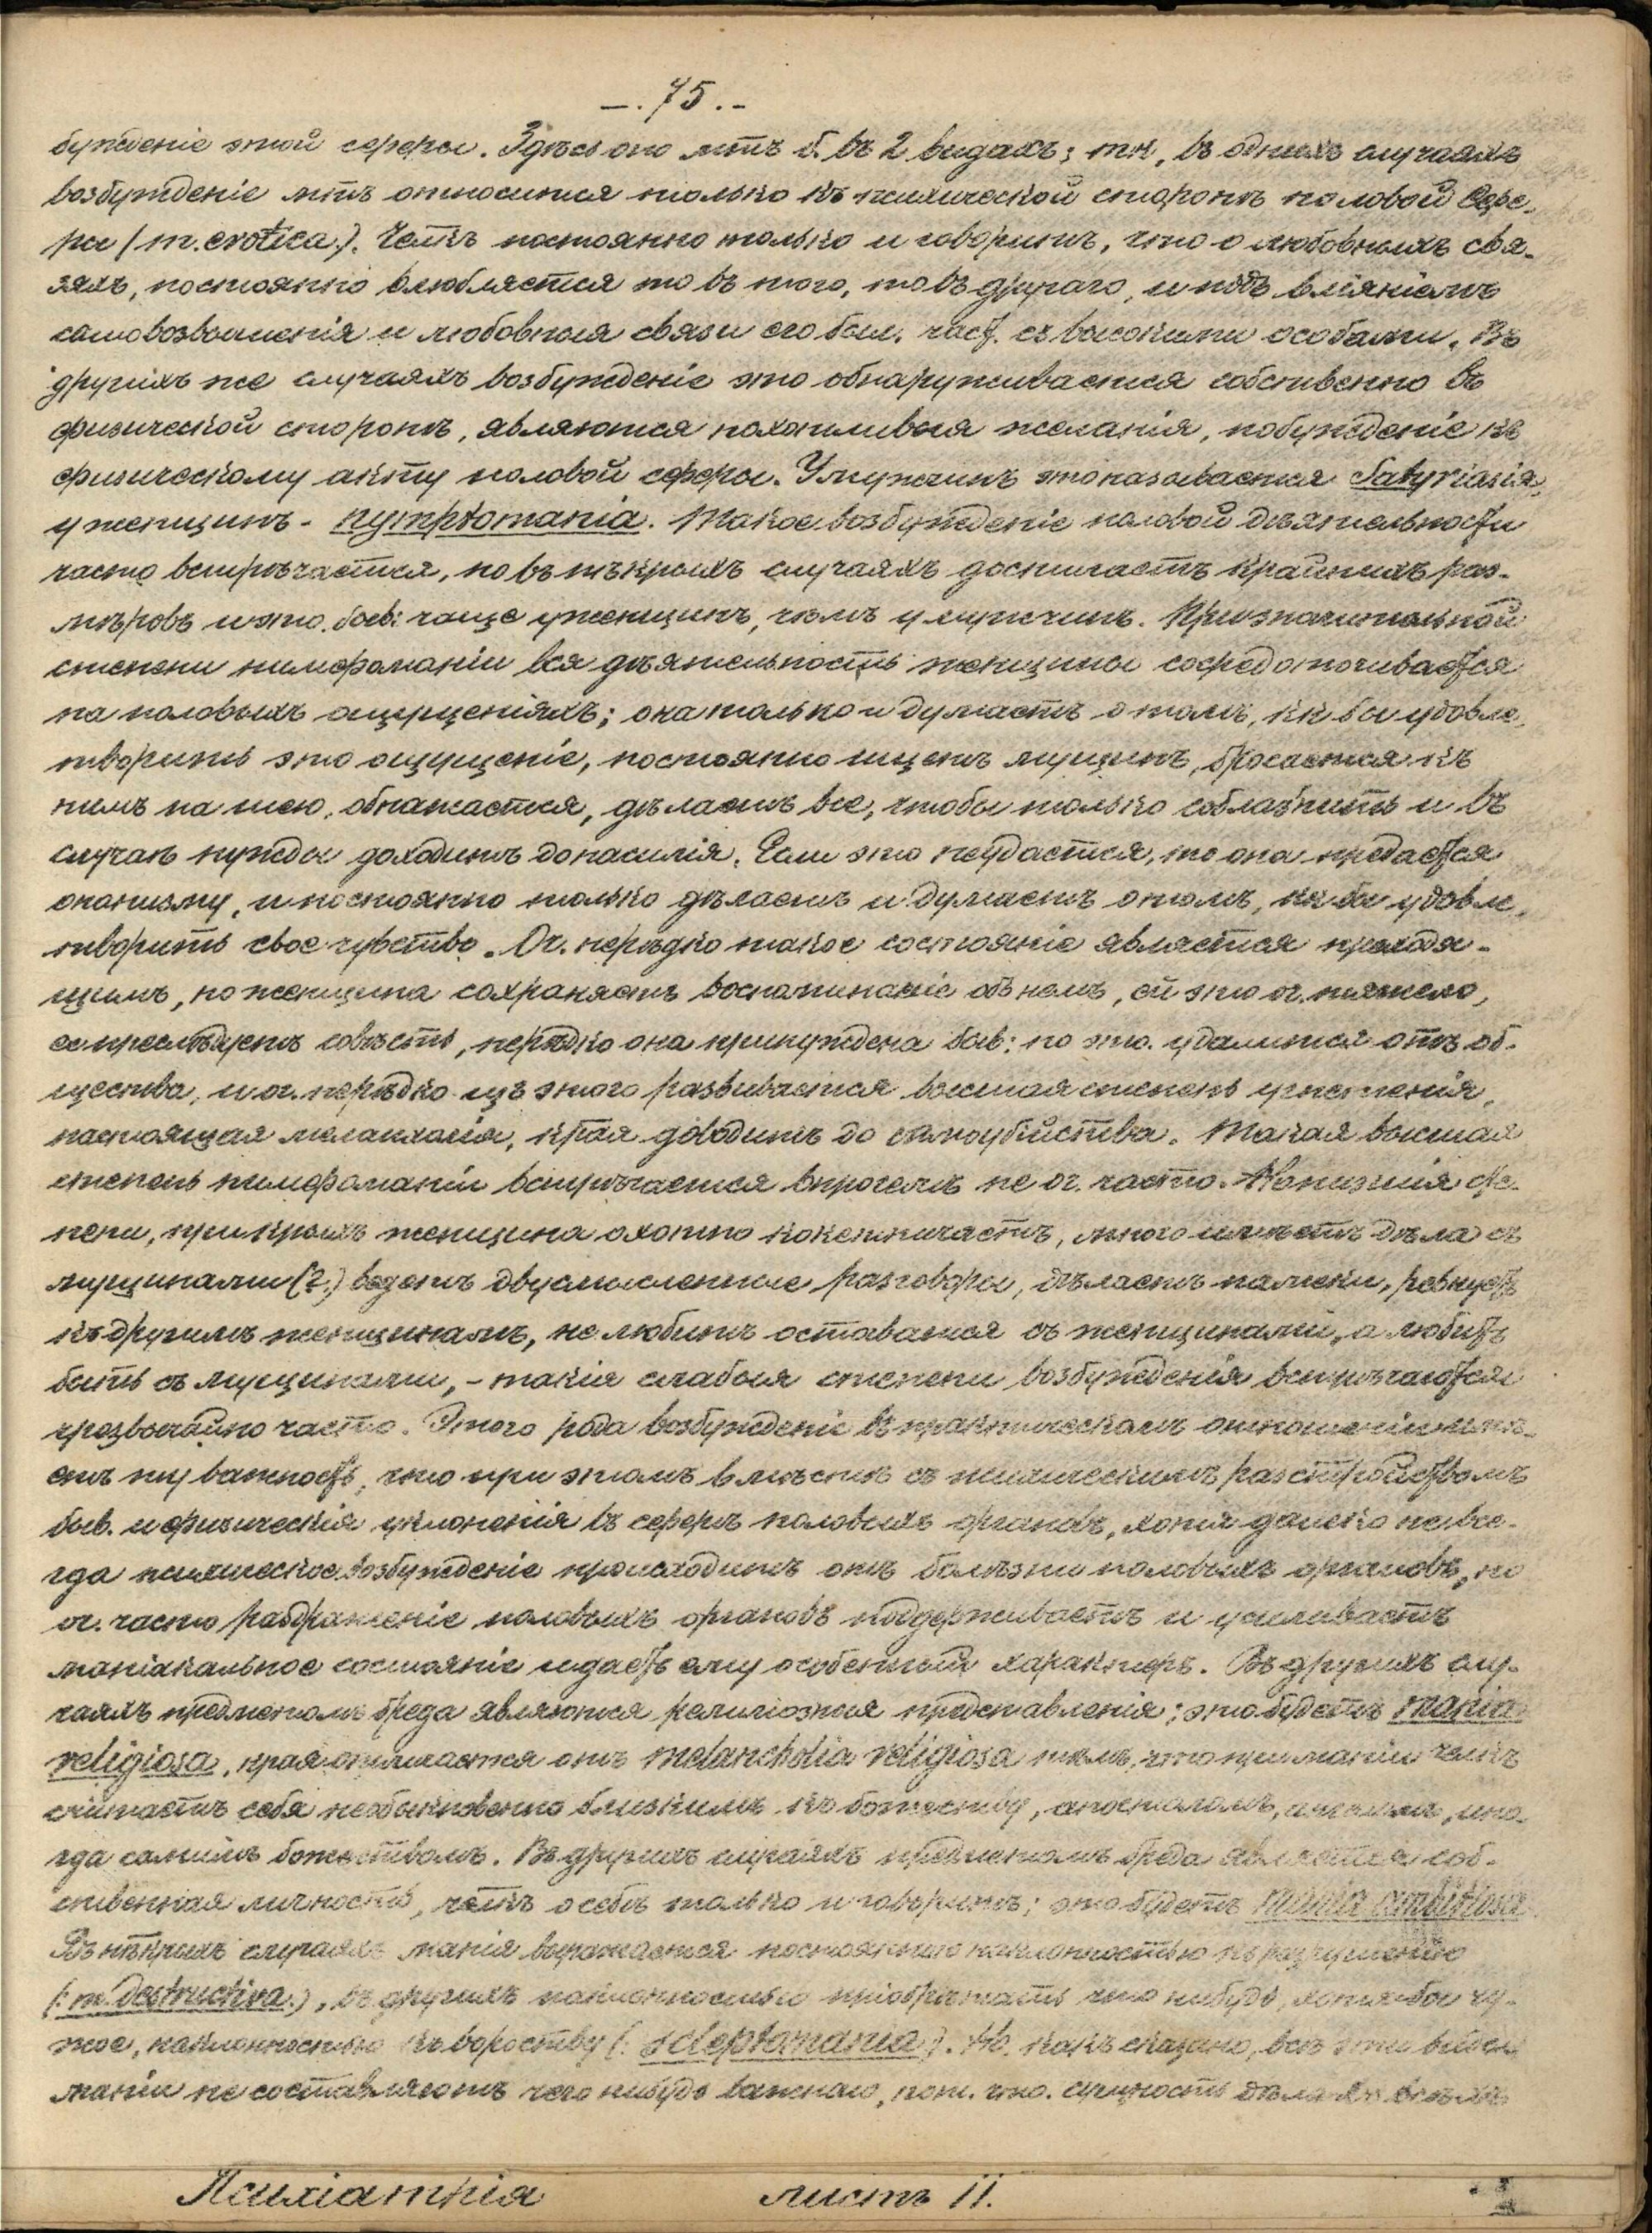 —. 75. -
бужденіе этой сферы. Здѣсь оно мтъ б. въ 2 видахъ; тк, въ однихъ случаяхъ
возбужденіе мтъ относиться только къ психической сторонѣ половой сфе-
ры (m. erotica.). Челкъ постоянно только и говоритъ, что о любовныхъ свя-
зяхъ, постоянно влюбляется то въ того, то въ другаго, и подъ вліяніемъ
самовозвышенія и любовныя связи его быв. част. съ высокими особами. Въ
другихъ же случаяхъ возбужденіе это обнаруживается собственно въ
физической сторонѣ, являются похотливыя желанія, побужденіе къ
физическому акту половой сферы. У мужчинъ это называется Satyriasis,
у женщинъ - nymphomania. Такое возбужденіе половой дѣятельности
часто встрѣчается, но въ нѣкрыхъ случаяхъ достигаетъ крайнихъ раз-
мѣровъ и это. быв: чаще у женщинъ, чѣмъ у мужчинъ. При значительной
степени нимфоманіи вся дѣятельность женщины сосредоточивается
на половыхъ ощущеніяхъ; она только и думаетъ о томъ, кк бы удовле-
творить это ощущеніе, постоянно ищетъ мущинъ, бросается къ
нимъ на шею, обнажается, дѣлаетъ все, чтобы только соблазнить и въ
случаѣ нужды доходитъ до насилія. Если это неудается, то она предается
онанизму, и постоянно только дѣлаетъ и думаетъ о томъ, кк бы удовле-
творить свое чувство. Оч. нерѣдко такое состояніе является преходя-
щимъ, но женщина сохраняетъ воспоминаніе объ немъ, ей это оч. тяжело,
ее преслѣдуетъ совѣсть, нерѣдко она принуждена быв: по это. удалиться отъ об-
щества, и оч. нерѣдко изъ этого развивается высшая степень угнетенія,
настоящая меланхолія, края доводитъ до самоубійства. Такая высшая
степень нимфоманіи встрѣчается впрочемъ не оч. часто. Но низшія сте-
пени, при крыхъ женщина охотно кокетничаетъ, много имѣетъ дѣла съ
мущинами (?.) ведетъ двусмысленные разговоры, дѣлаетъ намеки, ревнуетъ
къ другимъ женщинамъ, не любитъ оставаться съ женщинами, а любитъ
быть съ мущинами, - такія слабыя степени возбужденія встрѣчаются
чрезвычайно часто. Этого рода возбужденіе въ практическомъ отношеніи имѣ-
етъ ту важность, что при этомъ вмѣстѣ съ психическимъ разстройствомъ
быв. и физическія уклоненія въ сферѣ половыхъ органовъ, хотя далеко не все-
гда психическое возбужденіе происходитъ отъ болѣзни половыхъ органовъ, но
оч. часто раздраженіе половыхъ органовъ поддерживаетъ и усиливаетъ
маніакальное состояніе и даетъ ему особенный характеръ. Въ другихъ слу-
чаяхъ предметомъ бреда являются религіозныя представленія; это будетъ mania
religiosa, края отличается отъ melancholia religiosa тѣмъ, что при маніи челкъ
считаетъ себя необыкновенно близкимъ къ божеству, апостоломъ, ино-
гда самимъ божествомъ. Въ другихъ случаяхъ предметомъ бреда является соб-
ственная личность, челкъ о себѣ только и говоритъ; это будетъ mania ambitiosa.
Въ нѣкрыхъ случаяхъ манія выражается постоянною наклонностью къ разрушенію
(: m. destructiva.), въ другихъ наклонностью пріобрѣтать что нибудь, хотя бы чу-
жое, наклонностью къ воровству (: scleptomania). Но, какъ сказано, всѣ эти виды
маніи не составляютъ чего нибудь важнаго, пот. что. сущность дѣла во всѣхъ
Психіатрія листъ 11.